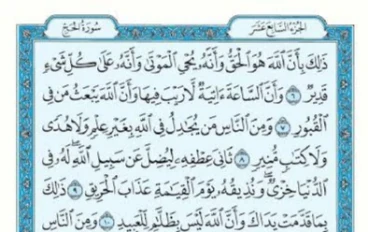 الجزء السابع عشر
سورة الحج
ذَٰلِكَ بِأَنَّ ٱللَّهَ هُوَ ٱلْحَقُّ وَأَنَّهُۥ يُحْىِ ٱلْمَوْتَىٰ وَأَنَّهُۥ عَلَىٰ كُلِّ شَىْءٍ
قَدِيرٌ ٦ وَأَنَّ ٱلسَّاعَةَ ءَاتِيَةٌ لَّا رَيْبَ فِيهَا وَأَنَّ ٱللَّهَ يَبْعَثُ مَن فِى
ٱلْقُبُورِ ٧ وَمِنَ ٱلنَّاسِ مَن يُجَٰدِلُ فِى ٱللَّهِ بِغَيْرِ عِلْمٍ وَلَا هُدًى
وَلَا كِتَٰبٍ مُّنِيرٍ ٨ ثَانِىَ عِطْفِهِۦ لِيُضِلَّ عَن سَبِيلِ ٱللَّهِ لَهُۥ فِى
ٱلدُّنْيَا خِزْىٌ وَنُذِيقُهُۥ يَوْمَ ٱلْقِيَٰمَةِ عَذَابَ ٱلْحَرِيقِ ٩ ذَٰلِكَ
بِمَا قَدَّمَتْ يَدَاكَ وَأَنَّ ٱللَّهَ لَيْسَ بِظَلَّٰمٍ لِّلْعَبِيدِ ١٠ وَمِنَ ٱلنَّاسِ